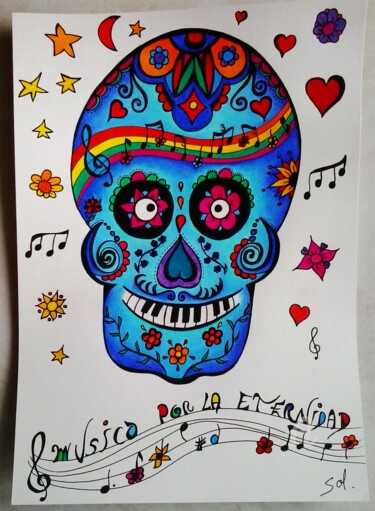 musico POR LA ETERNIDAD
Sol.